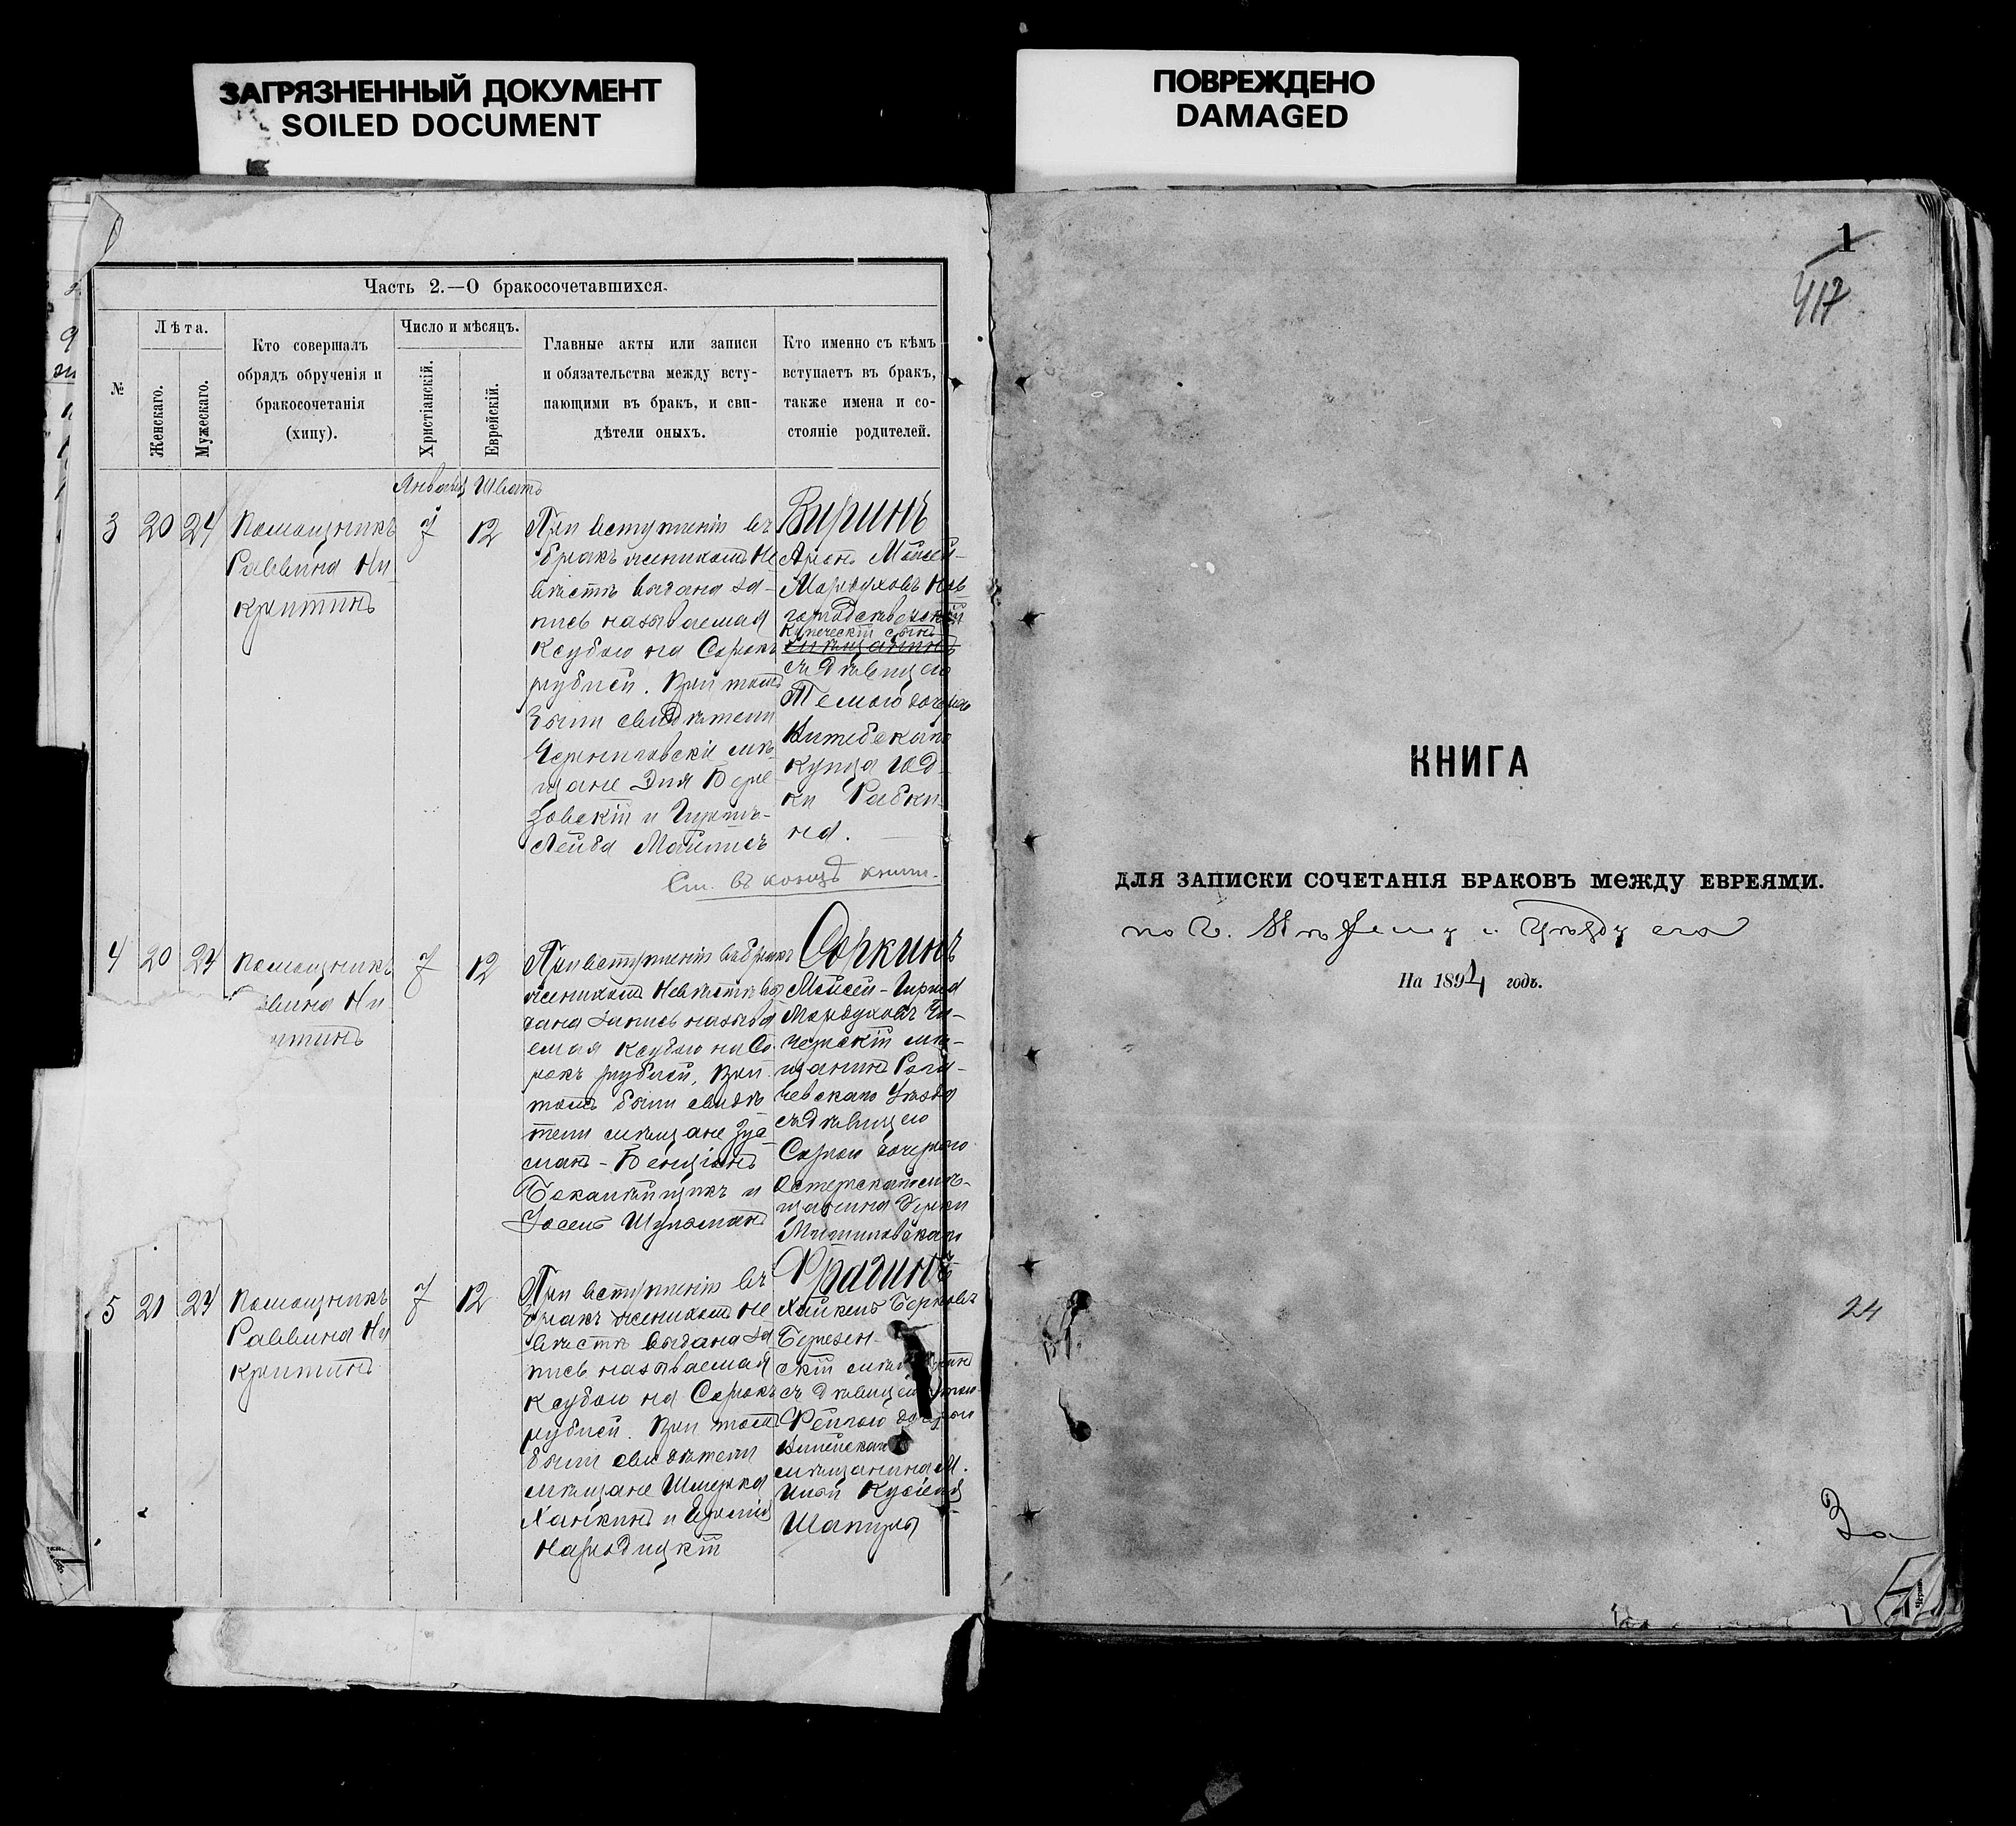 ЗАГРЯЗНЕННЫЙ ДОКУМЕНТ
SOILED DOCUMENT
ПОВРЕЖДЕНО
DAMAGED
Часть 2.—О бракосочетавшихся.
№
Лѣта.
Женскаго.
Мужескаго.
Кто совершалъ
обрядъ обрученія и
бракосочетанія
(хипу).
Число и мѣсяцъ.
Христіанскій.
Еврейскій.
Главные акты или записи
и обязательства между всту-
пающими въ бракъ, и сви-
дѣтели оныхъ.
Кто именно съ кѣмъ
вступаетъ въ бракъ,
также имена и со-
стояніе родителей.
Январь Шватъ
3 20 24
Помощникъ
Раввина Ни
критинъ
7 12
При вступленіи въ
бракъ женихомъ не
вѣстѣ выдана за-
пись называемая
Ксубою на Сорокъ
рублей. При томъ
были свидѣтели
Черниговскіе мѣ
щане Эля Бере
зовскій и Гиршъ-
Лейба
Виринъ
Аронъ Мойсей-
Мордуховъ Нов
городсѣверскій
купеческій сынъ
съ дѣвицею
Темою дочерью
Витебскаго
купца Юд-
ки Рабки-
на.
См. въ концѣ книги.
4 20 24
Помощникъ
ввина Ни
итинъ
7 12
При вступленіи въ бракъ
женихомъ невѣстѣ вы
дана запись называ
емая Ксубою на Со
рокъ рублей, при
томъ были свидѣ
тели мѣщане Зус
манъ-Бенціонъ
и
Іосель Шульманъ
Соркинъ
Мойсей-Гирша
Мордуховъ Чи-
черскій мѣ-
щанинъ Рога-
чевскаго уѣзда
съ дѣвицею
Сорою дочерью
Остерскаго мѣ-
щанина Берки
5 21 24
Помощникъ
Раввина Ни
критинъ
7 12
При вступленіи въ
бракъ женихомъ не
вѣстѣ выдана за
пись называемая
Ксубою на Сорокъ
рублей. При томъ
были свидѣтели
мѣщане Шмерка
Ханкинъ и
Народицкій
Фрагинъ
Хайкель Берковъ
Березин-
скій
съ дѣвицею
Фейгою дочерью
мѣщанина М.
Шапиры
1
417
КНИГА
ДЛЯ ЗАПИСКИ СОЧЕТАНІЯ БРАКОВЪ МЕЖДУ ЕВРЕЯМИ.
по г. и уѣзду его
На 1894 годъ.
24
За